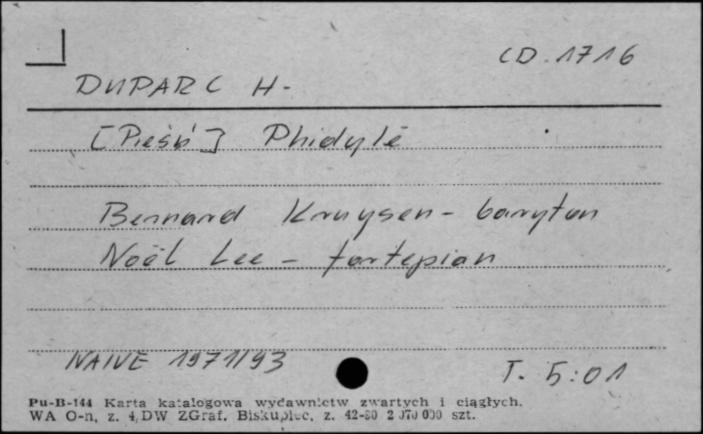 CD. 1716
DUPARC H.
[Pieśń] Phidylé
Bernard Kruysen - baryton
Noël Lee - fortepian
NAIVE 1971/93
T. 5:01
Pu-B-144 Karta katalogowa wydawnictw zwartych i ciągłych.
WA O-n, z. 4, DW ZGraf. Biskupiec, z. 42-80 2 070 000 szt.